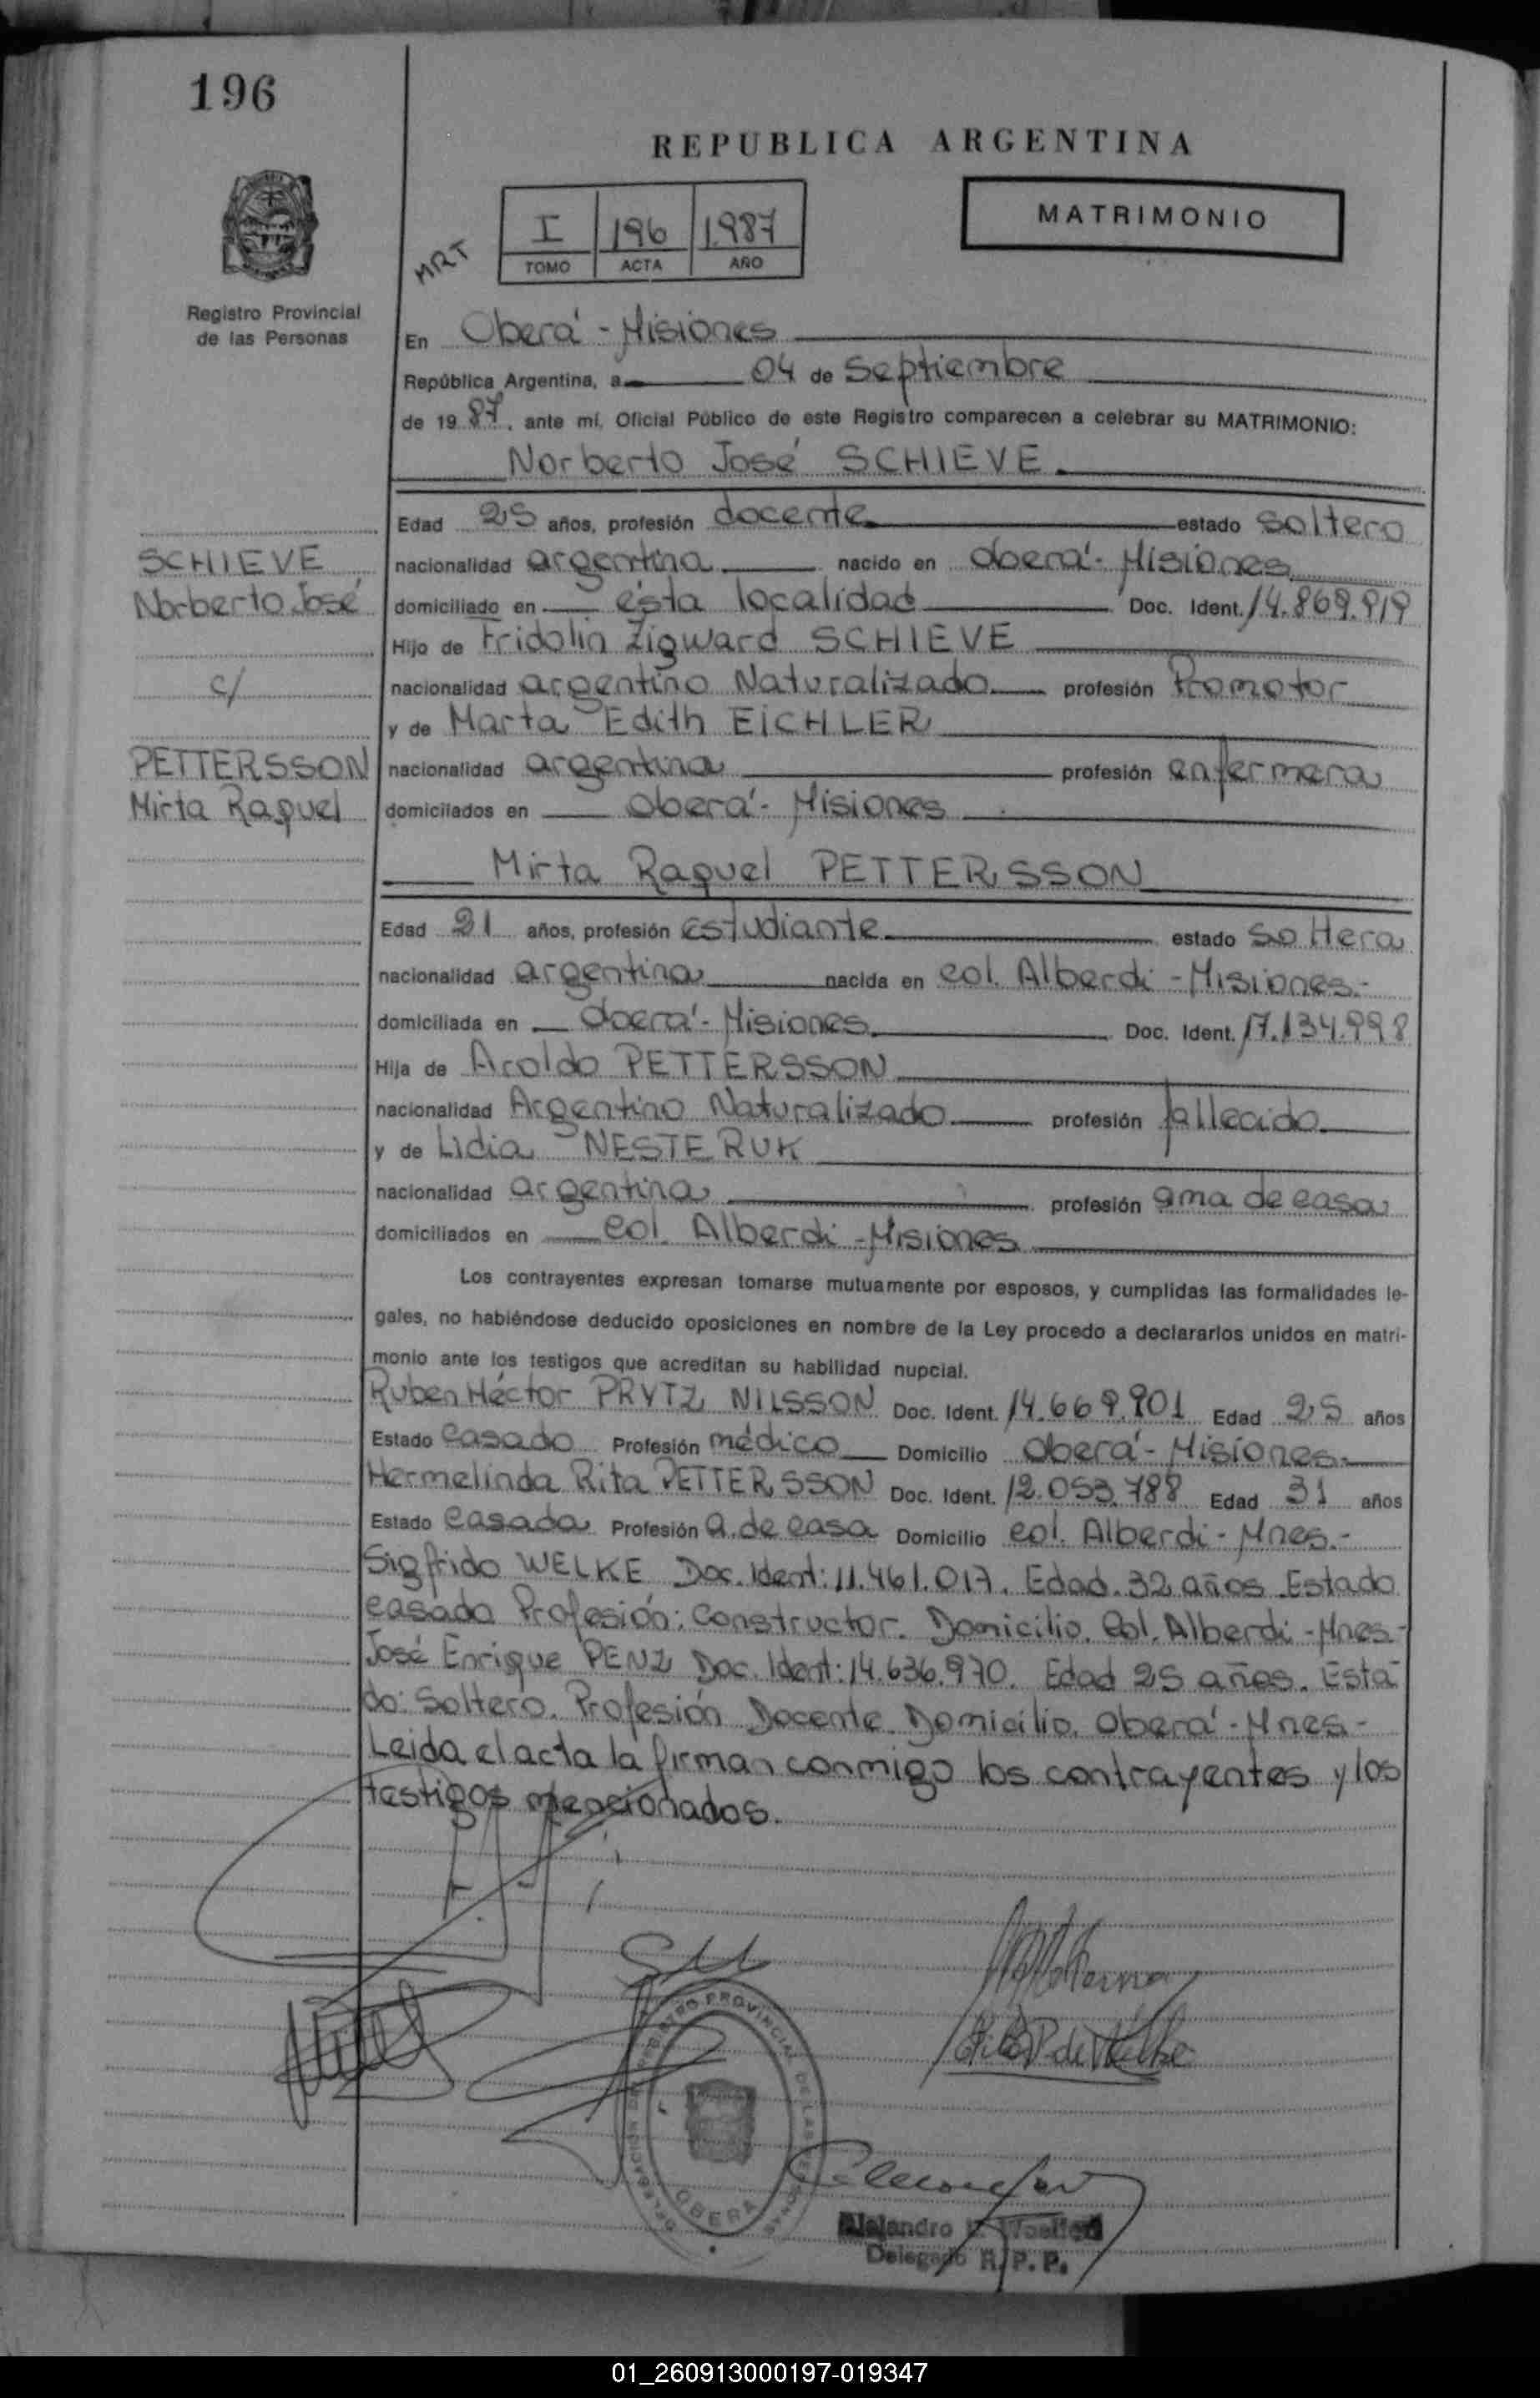 196
REPUBLICA ARGENTINA
MATRIMONIO
MRT
I 196 1987
TOMO ACTA AÑO
Registro Provincial
de las Personas
En Oberá - Misiones
República Argentina, a 04 de Septiembre
de 19 87, ante mí, Oficial Público de este Registro comparecen a celebrar su MATRIMONIO:
Norberto José SCHIEVE
Edad 25 años, profesión docente estado Soltero
SCHIEVE
nacionalidad argentina nacido en Oberá - Misiones
Norberto José
domiciliado en ésta localidad Doc. Ident. 14.869.919
Hijo de Fridolin Zigward SCHIEVE
c/
nacionalidad argentino Naturalizado profesión Promotor
y de Marta Edith EICHLER
PETTERSSON
nacionalidad argentina profesión enfermera
Mirta Raquel
domiciliados en Oberá - Misiones
Mirta Raquel PETTERSSON
Edad 21 años, profesión estudiante estado Soltera
nacionalidad argentina nacida en Col. Alberdi - Misiones.-
domiciliada en Oberá - Misiones Doc. Ident. 17.134.998
Hija de Aroldo PETTERSSON
nacionalidad Argentino Naturalizado profesión fallecido
y de Lidia NESTERUK
nacionalidad argentina profesión ama de casa
domiciliados en Col. Alberdi - Misiones
Los contrayentes expresan tomarse mutuamente por esposos, y cumplidas las formalidades le-
gales, no habiéndose deducido oposiciones en nombre de la Ley procedo a declararlos unidos en matri-
monio ante los testigos que acreditan su habilidad nupcial.
Ruben Héctor PRYTZ NILSSON Doc. Ident. 14.669.901 Edad 25 años
Estado Casado Profesión médico Domicilio Oberá - Misiones.
Hermelinda Rita PETTERSSON Doc. Ident. 12.053.788 Edad 31 años
Estado Casada Profesión A. de casa Domicilio Col. Alberdi - Mnes.-
Sigfrido WELKE Doc. Ident: 11.461.017. Edad. 32 años. Estado
Casado Profesión: Constructor. Domicilio. Col. Alberdi - Mnes-
José Enrique PENZ Doc. Ident: 14.636.970. Edad 25 años. Esta-
do: Soltero. Profesión Docente. Domicilio. Oberá - Mnes-
Leida el acta la firman conmigo los contrayentes y los
testigos mencionados.
REGISTRO PROVINCIAL DE LAS PERSONAS
OBERA
Alejandro
Delegado R. P. P.
01_260913000197-019347